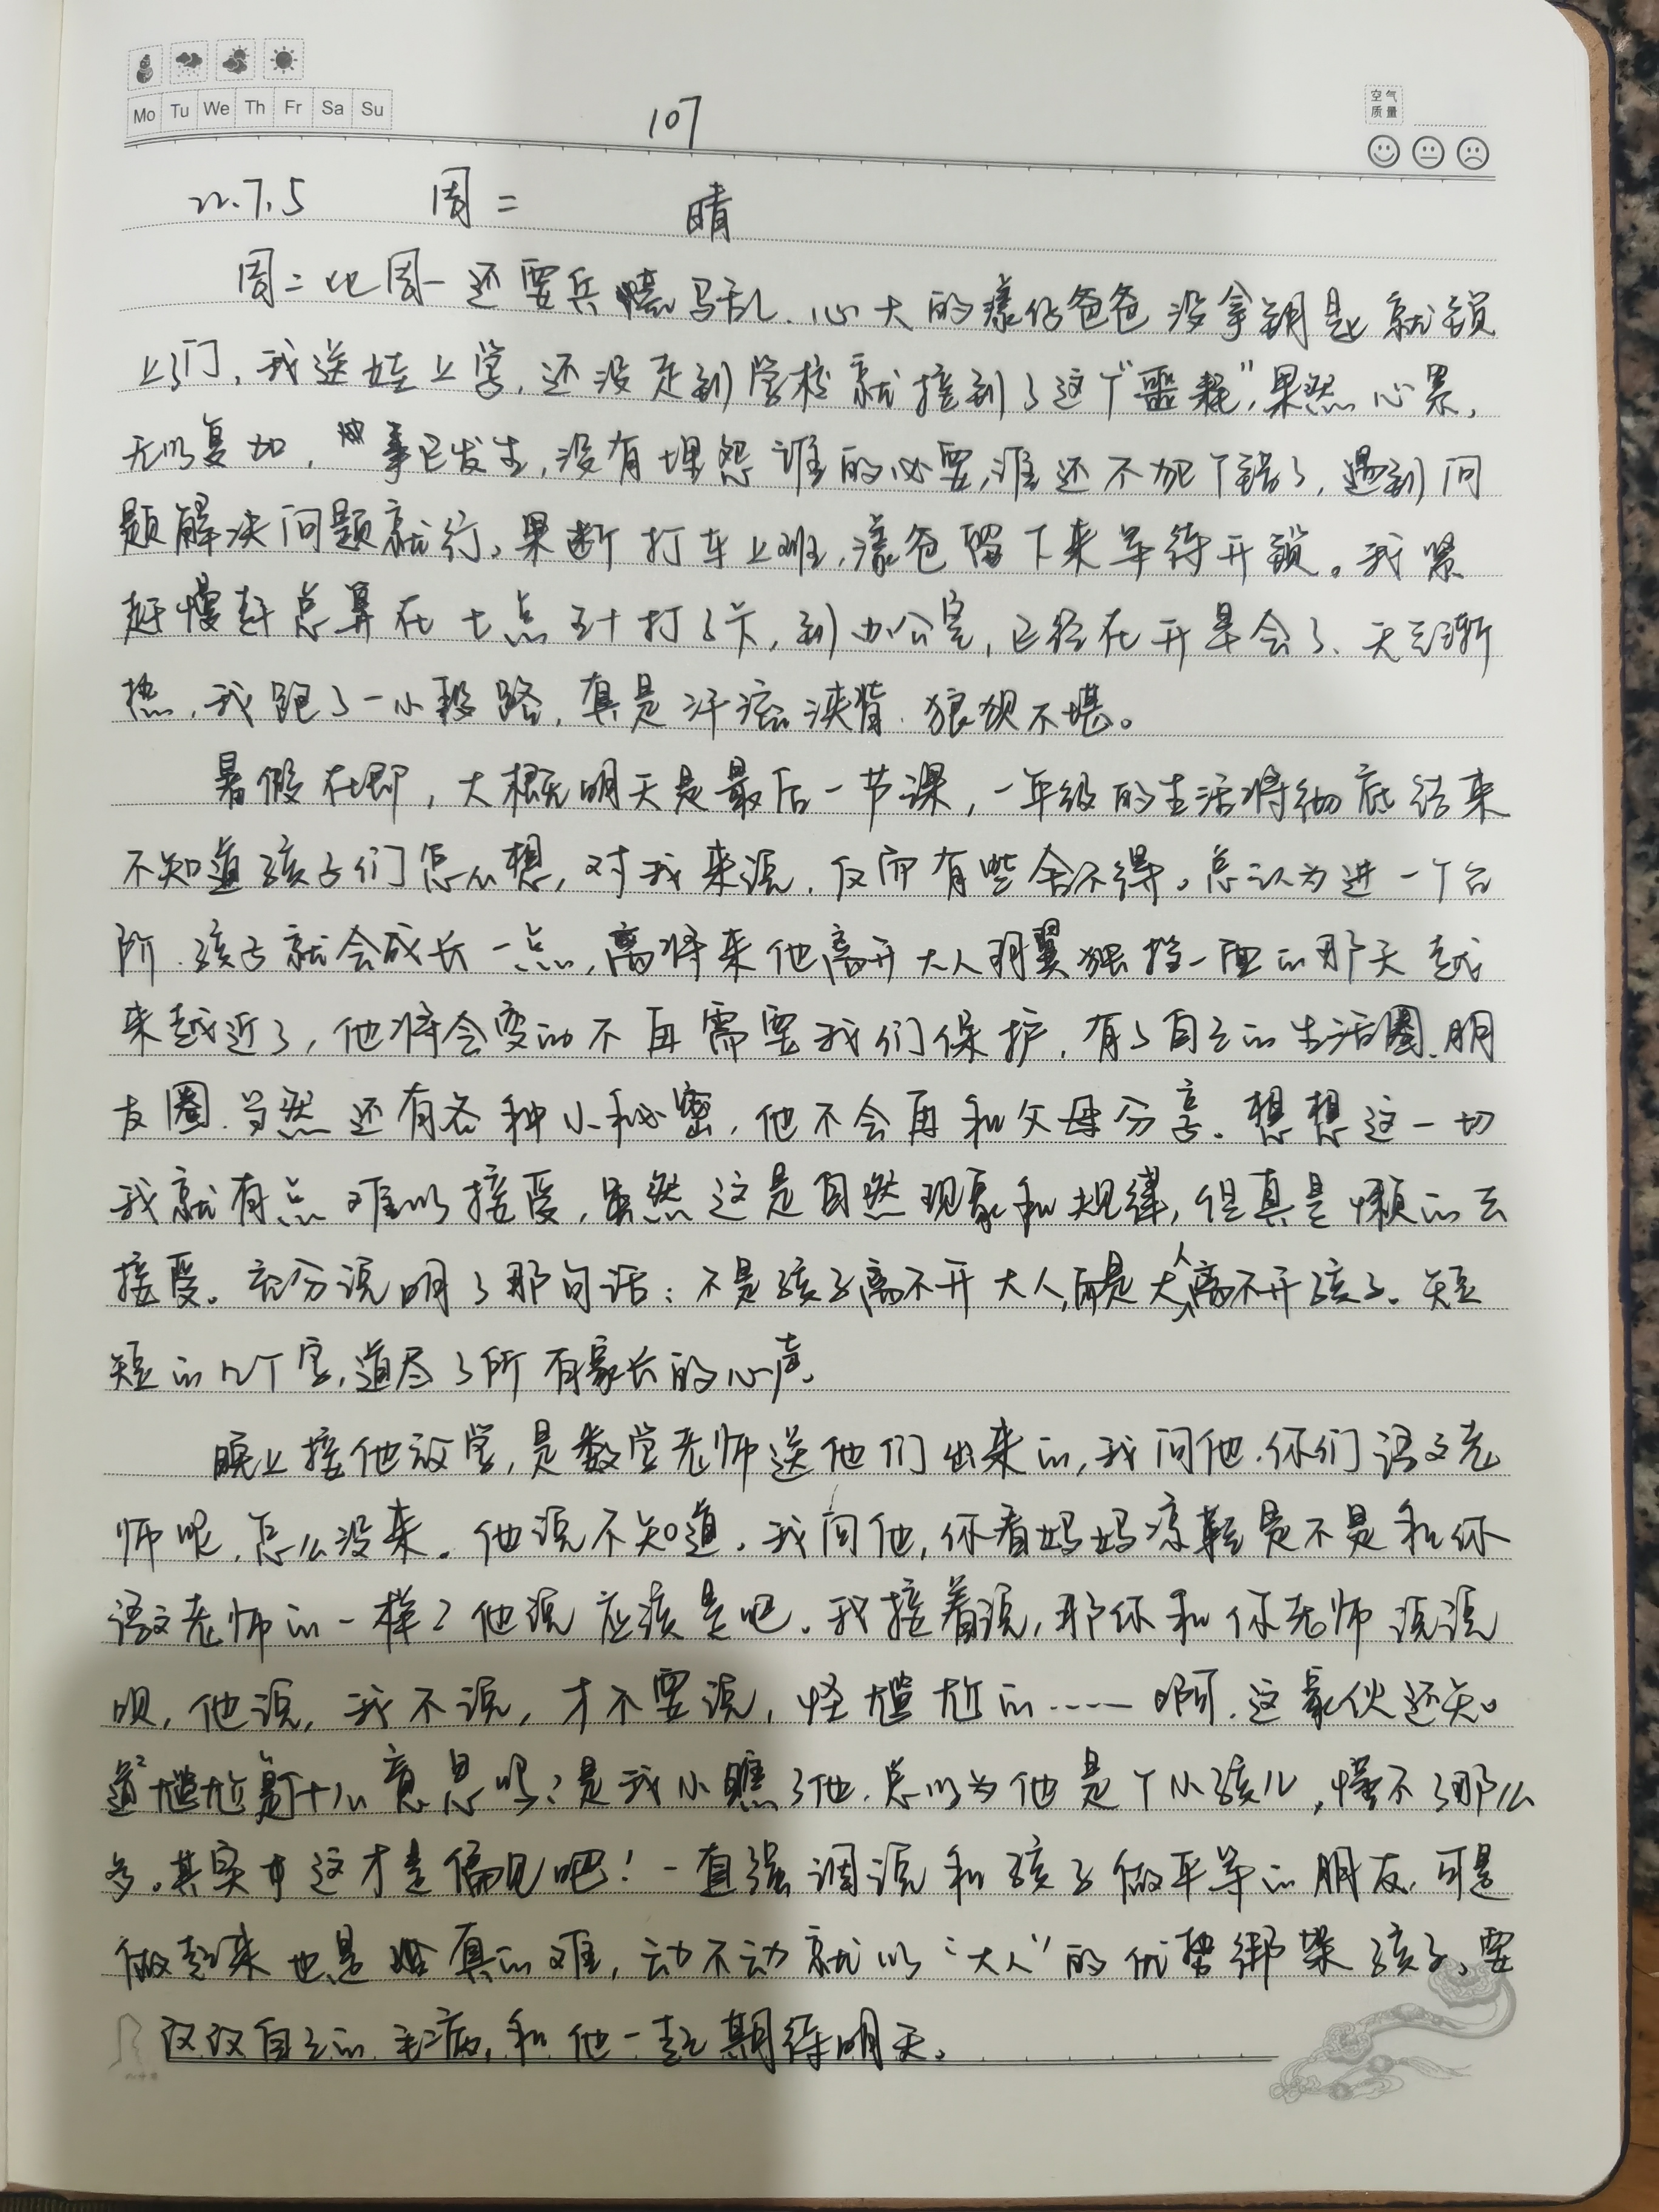 Mo Tu We Th Fr Sa Su
107
空气
质量
22.7.5 周二 晴
周二比周一还要兵慌马乱、心大的漾仔爸爸没拿钥匙就锁
上了门,我送娃上学,还没走到学校就接到了这个“噩耗”,果然心累,
无以复加,事已发生,没有埋怨谁的必要,谁还不犯个错了,遇到问
题解决问题就行。果断打车上班,漾爸留下来等待开锁。我紧
赶慢赶总算在七点五十打了卡,到办公室,已经在开早会了、天气渐
热,我跑了一小段路,真是汗流浃背、狼狈不堪。
暑假在即,大概明天是最后一节课,一年级的生活将彻底结束
不知道孩子们怎么想,对我来说,反而有些舍不得。总认为进一个台
阶、孩子就会成长一点,离将来他离开大人羽翼独挡一面的那天越
来越近了,他将会变的不再需要我们保护,有了自己的生活圈、朋
友圈、当然还有各种小秘密,他不会再和父母分享。想想这一切
我就有点难以接受,虽然这是自然现象和规律,但真是懒的去
接受。充分说明了那句话:不是孩子离不开大人,而是大人离不开孩子。短
短的几个字,道尽了所有家长的心声。
晚上接他放学,是数学老师送他们出来的,我问他,你们语文老
师呢,怎么没来。他说不知道,我问他,你看妈妈凉鞋是不是和你
语文老师的一样?他说应该是吧。我接着说,那你和你老师说说
呗,他说,我不说,才不要说,怪尴尬的……啊,这家伙还知
道尴尬是什么意思呢?是我小瞧了他,总以为他是个小孩儿,懂不了那么
多。其实这才是偏见吧!一直强调说和孩子做平等的朋友,可是
做起来也是真的难,动不动就以“大人”的优势绑架孩子、要
改改自己的毛病,和他一起期待明天。